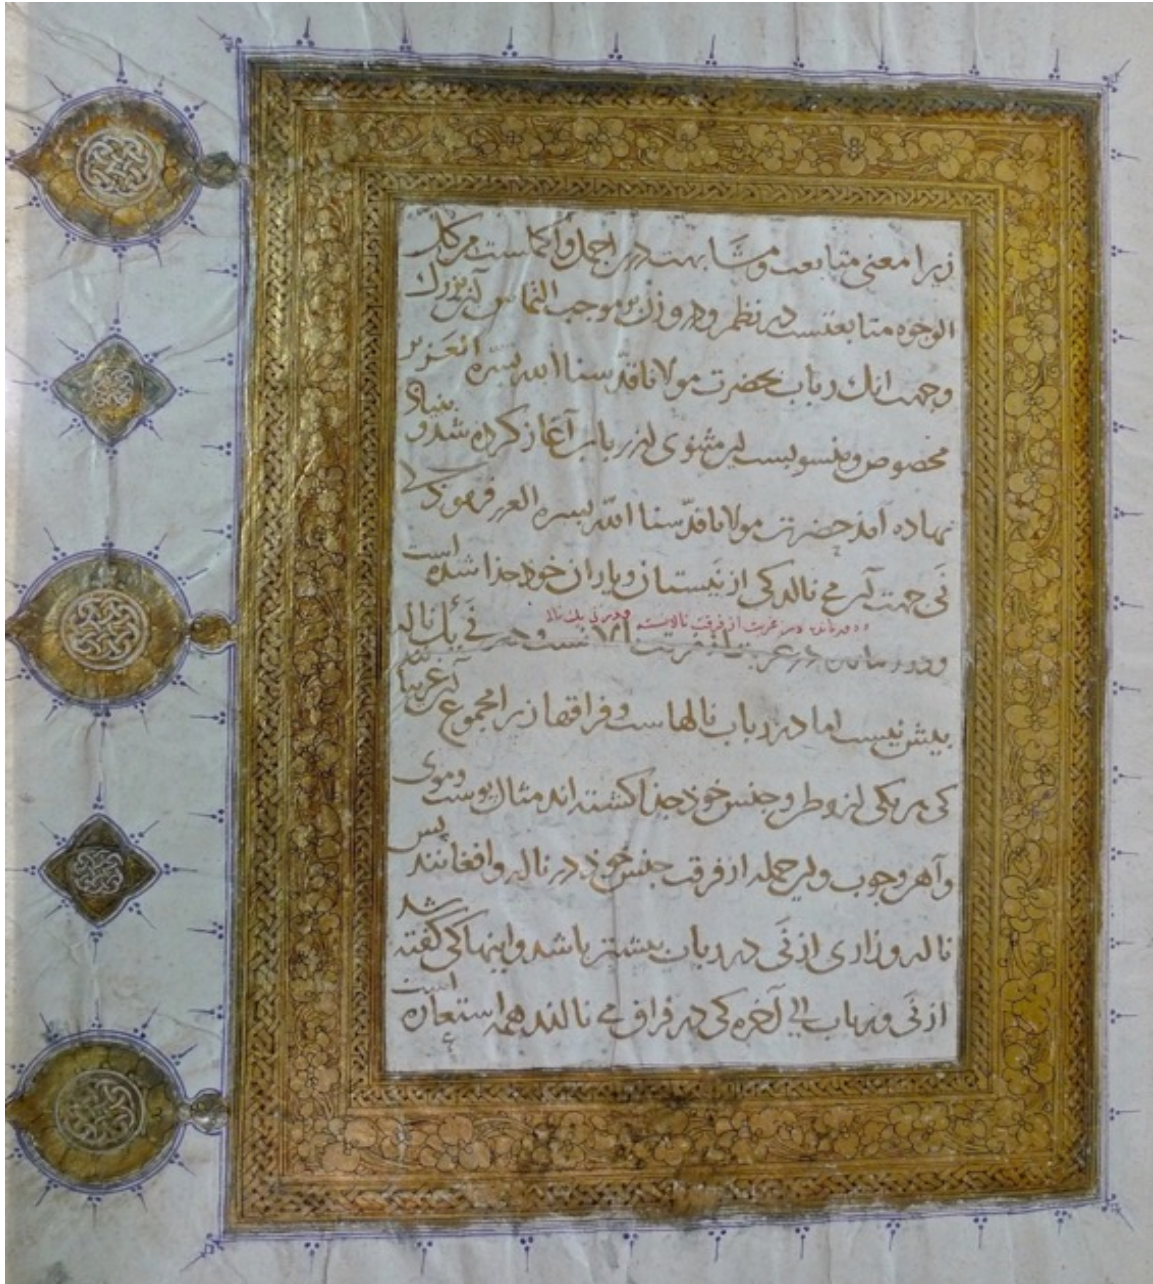 زیرا معنی متابعت و مشابهت درین اجمل و اکملست من کل
الوجوه متابعتست در نظم و در وزن بموجب التماس آن بزرگ
و جهت آنك رباب بحضرت مولانا قدّسنا الله بسره العزیز
مخصوص و منسوبست این مثنوی از رباب آغاز کرده شد و بنیاد
نهاده آمذ حضرت مولانا قدّسنا الله بسره العزیز فرموذ کی
نَی جهت آن می نالد کی از نَیستان و یاران خوذ جذا شده است
و دور مانده در غربت از فرقت نالانست و در نی یك ناله
و دور مانده در غربت از فرقت نالانست و در نَی یك ناله
بیش نیست اما در رباب نالهاست و فراقها زیرا مجموع آن غریبانند
کی هر یکی از وطن و جنس خوذ جذا کشته اند مثال پوست و موی
و آهن و چوب و این جمله از فرقت جنس خوذ در ناله و افغانند پس
ناله و زاری از نَی در رباب بیشتر باشد و اینها کی گفته شد
از نَی و رباب الی آخره کی در فراق می نالند همه استعارت است